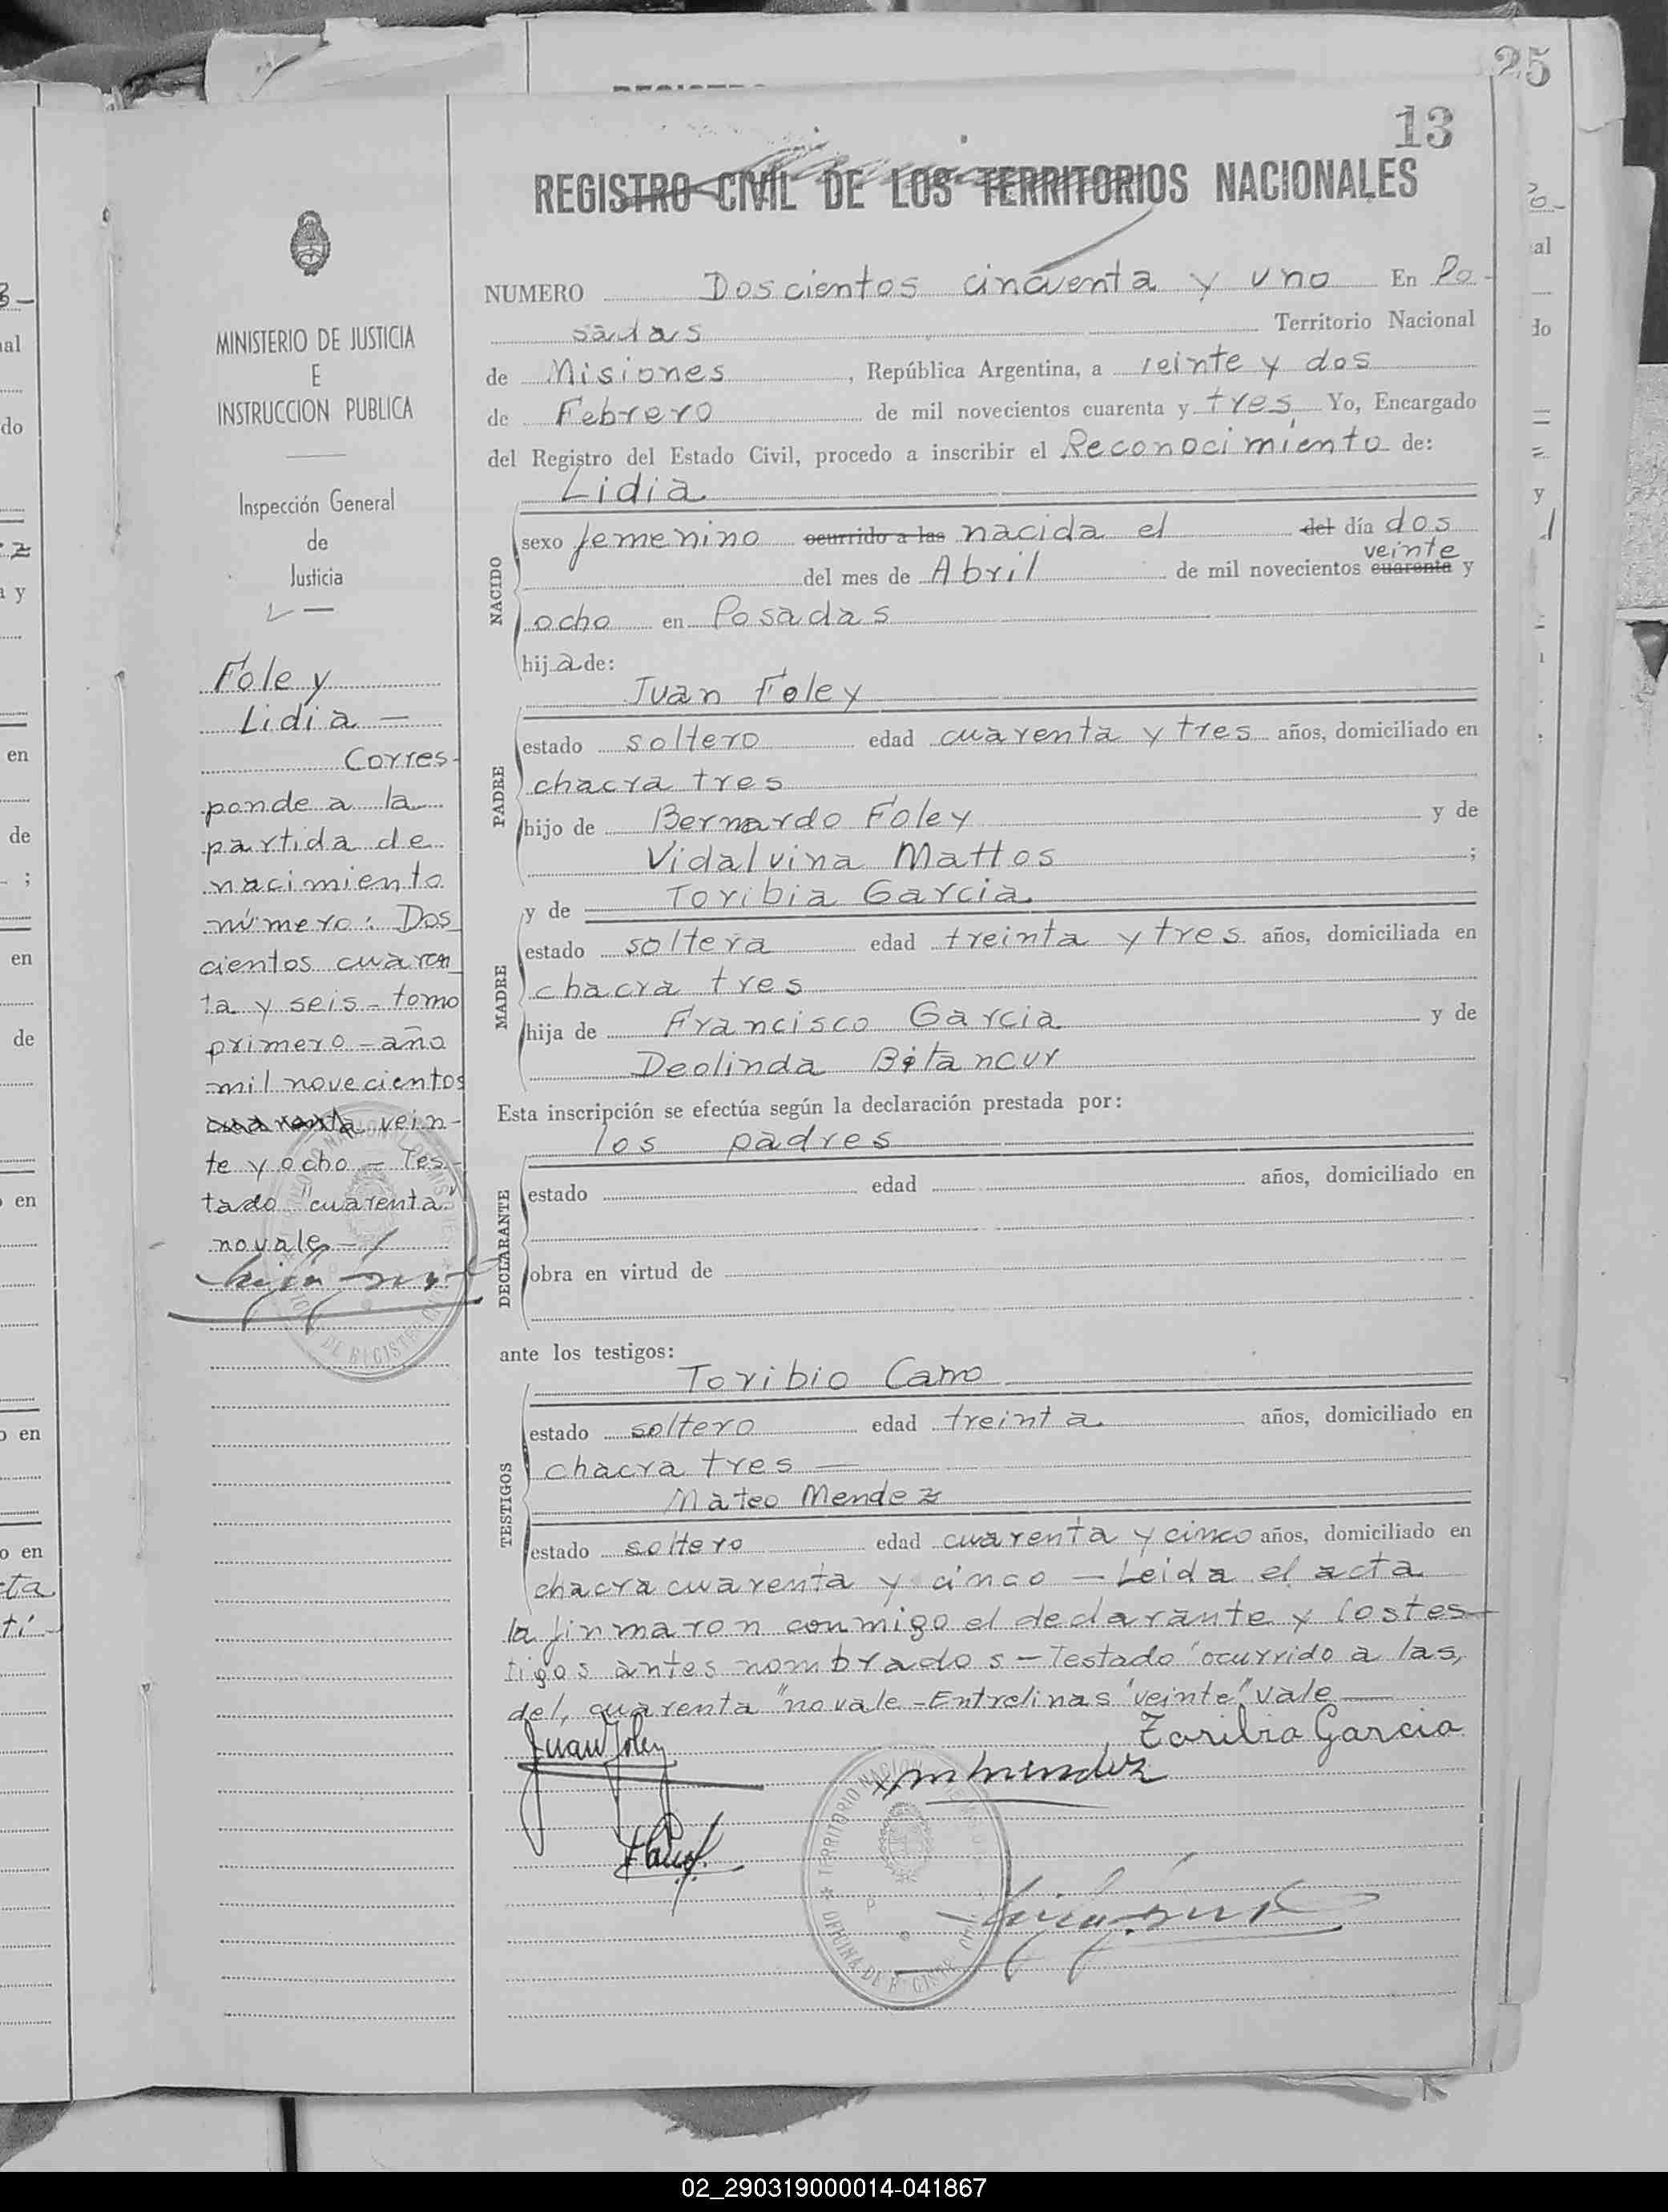 25
13
REGISTRO CIVIL DE LOS TERRITORIOS NACIONALES
NUMERO Doscientos cincuenta y uno En Po-
sadas Territorio Nacional
de Misiones, República Argentina, a veinte y dos
de Febrero de mil novecientos cuarenta y tres Yo, Encargado
del Registro del Estado Civil, procedo a inscribir el Reconocimiento de:
Lidia
NACIDO
sexo femenino ocurrido a las nacida el del día dos
veinte
del mes de Abril de mil novecientos cuarenta y
ocho en Posadas
hija de:
Juan Foley
PADRE
estado soltero edad cuarenta y tres años, domiciliado en
chacra tres
hijo de Bernardo Foley y de
Vidalvina Mattos ;
y de Toribia Garcia
MADRE
estado soltera edad treinta y tres años, domiciliada en
chacra tres
hija de Francisco Garcia y de
Deolinda Bitancur
Esta inscripción se efectúa según la declaración prestada por:
los padres
DECLARANTE
estado edad años, domiciliado en
obra en virtud de
ante los testigos:
Toribio Cano
TESTIGOS
estado soltero edad treinta años, domiciliado en
chacra tres —
Mateo Mendez
estado soltero edad cuarenta y cinco años, domiciliado en
chacra cuarenta y cinco — Leida el acta
la firmaron conmigo el declarante y los tes-
tigos antes nombrados - Testado "ocurrido a las,
del, cuarenta" no vale - Entrelinas "veinte" vale —
Juan Foley
Toribia Garcia
M Mendez
MINISTERIO DE JUSTICIA
E
INSTRUCCION PUBLICA
Inspección General
de
Justicia
Foley
Lidia —
Corres-
ponde a la
partida de
nacimiento
número: Dos
cientos cuaren
ta y seis - tomo
primero - año
mil novecientos
cuarenta vein-
te y ocho - Tes-
tado "cuarenta"
no vale -
02_290319000014-041867